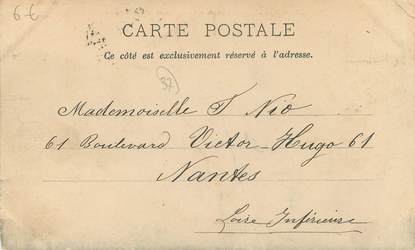 6-€
CARTE POSTALE
Ce côté est exclusivement réservé à l'adresse.
37
Mademoiselle F Nio
61 Boulevard Victor-Hugo 61
Nantes
Loire Inférieure